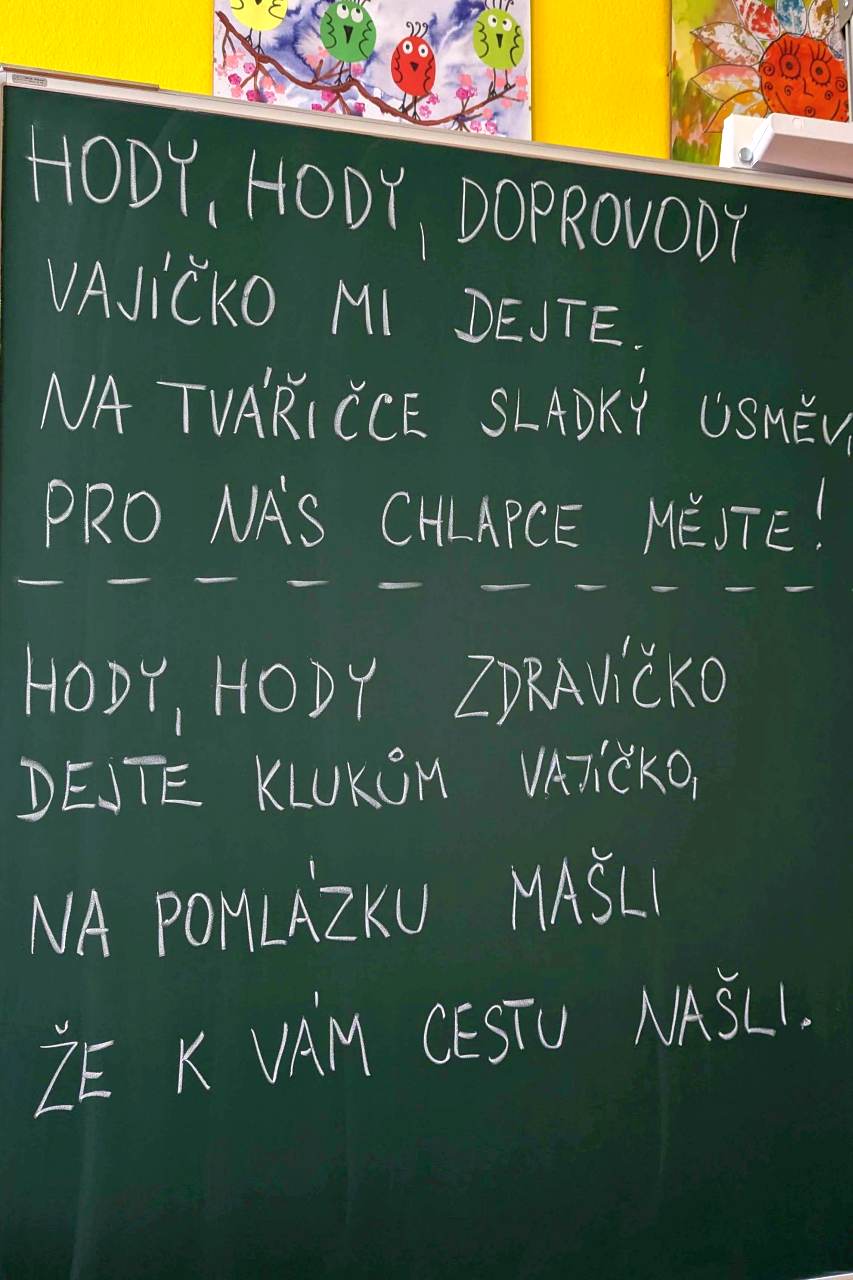 HODY, HODY, DOPROVODY
VAJÍČKO MI DEJTE.
NA TVÁŘIČCE SLADKÝ ÚSMĚV,
PRO NÁS CHLAPCE MĚJTE!
– – – – – – – – – –
HODY, HODY ZDRAVÍČKO
DEJTE KLUKŮM VAJÍČKO,
NA POMLÁZKU MAŠLI
ŽE K VÁM CESTU NAŠLI.